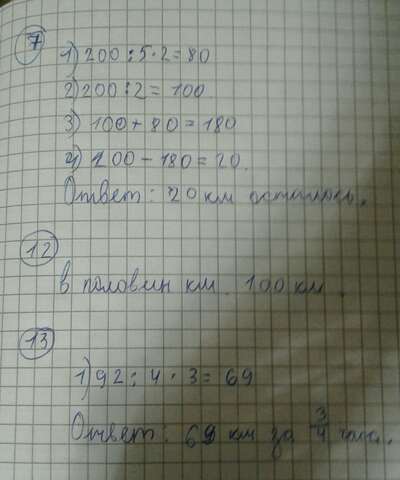 7
1) 200 : 5 · 2 = 80
2) 200 : 2 = 100
3) 100 + 80 = 180
4) 200 - 180 = 20.
Ответ: 20 км осталось.
12
в половин км. 100 км.
13
1) 92 : 4 · 3 = 69
Ответ: 69 км за 3/4 часа.